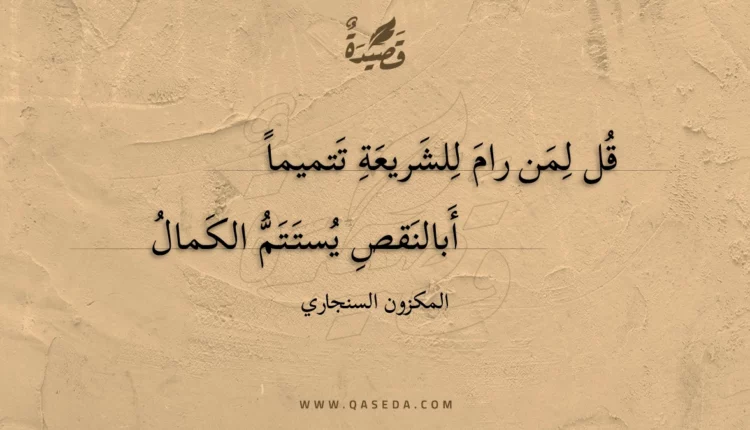 قَصِيدَةٌ
قُل لِمَن رامَ لِلشَريعَةِ تَتميماً
أَبالنَقصِ يُستَتَمُّ الكَمالُ
المكزون السنجاري
WWW.QASEDA.COM